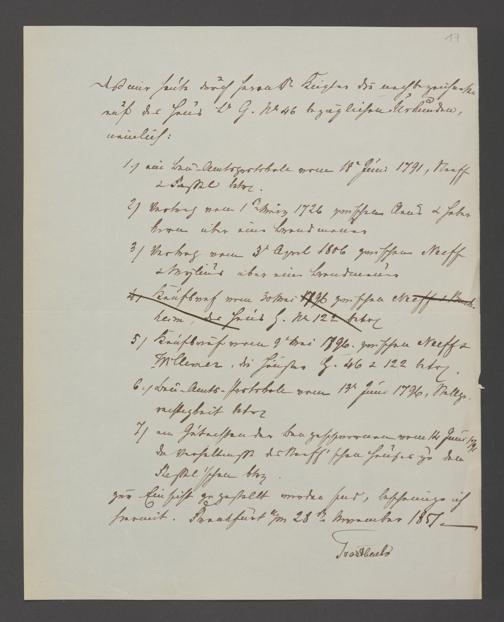 17
Daß mir heute durch Herrn Dr. Ziegler die nachbezeichneten
auf das Haus Lit G. No 46 bezüglichen Urkunden,
nämlich:
1.) ein Bau-Amtsprotokoll vom 18t Juni 1791, Neeff
& Passet betr.
2) Vertrag vom 1 März 1726 zwischen &
über eine Brandmauer
3) Vertrag vom 3t April 1806 zwischen Neeff
& Mylius über eine Brandmauer
4) Kaufbrief vom 30 Mai 1796 zwischen Neeff &
das Haus G. No 122 betr
5) Kaufbrief vom 9t Mai 1796. zwischen Neeff &
Willemer, die Häuser G. 46 & 122 betr.
6.) Bau-Amts-Protokoll vom 13t Juni 1796,
betr
7) ein Gutachten der Baugeschworenen vom 14 Juni
die Verhältnisse des Neeff'schen Hauses zu dem
Passet'schen btr.
zur Einsicht zugestellt worden sind, bescheinige ich
hiermit. Frankfurt a/m 28ten November 1851.